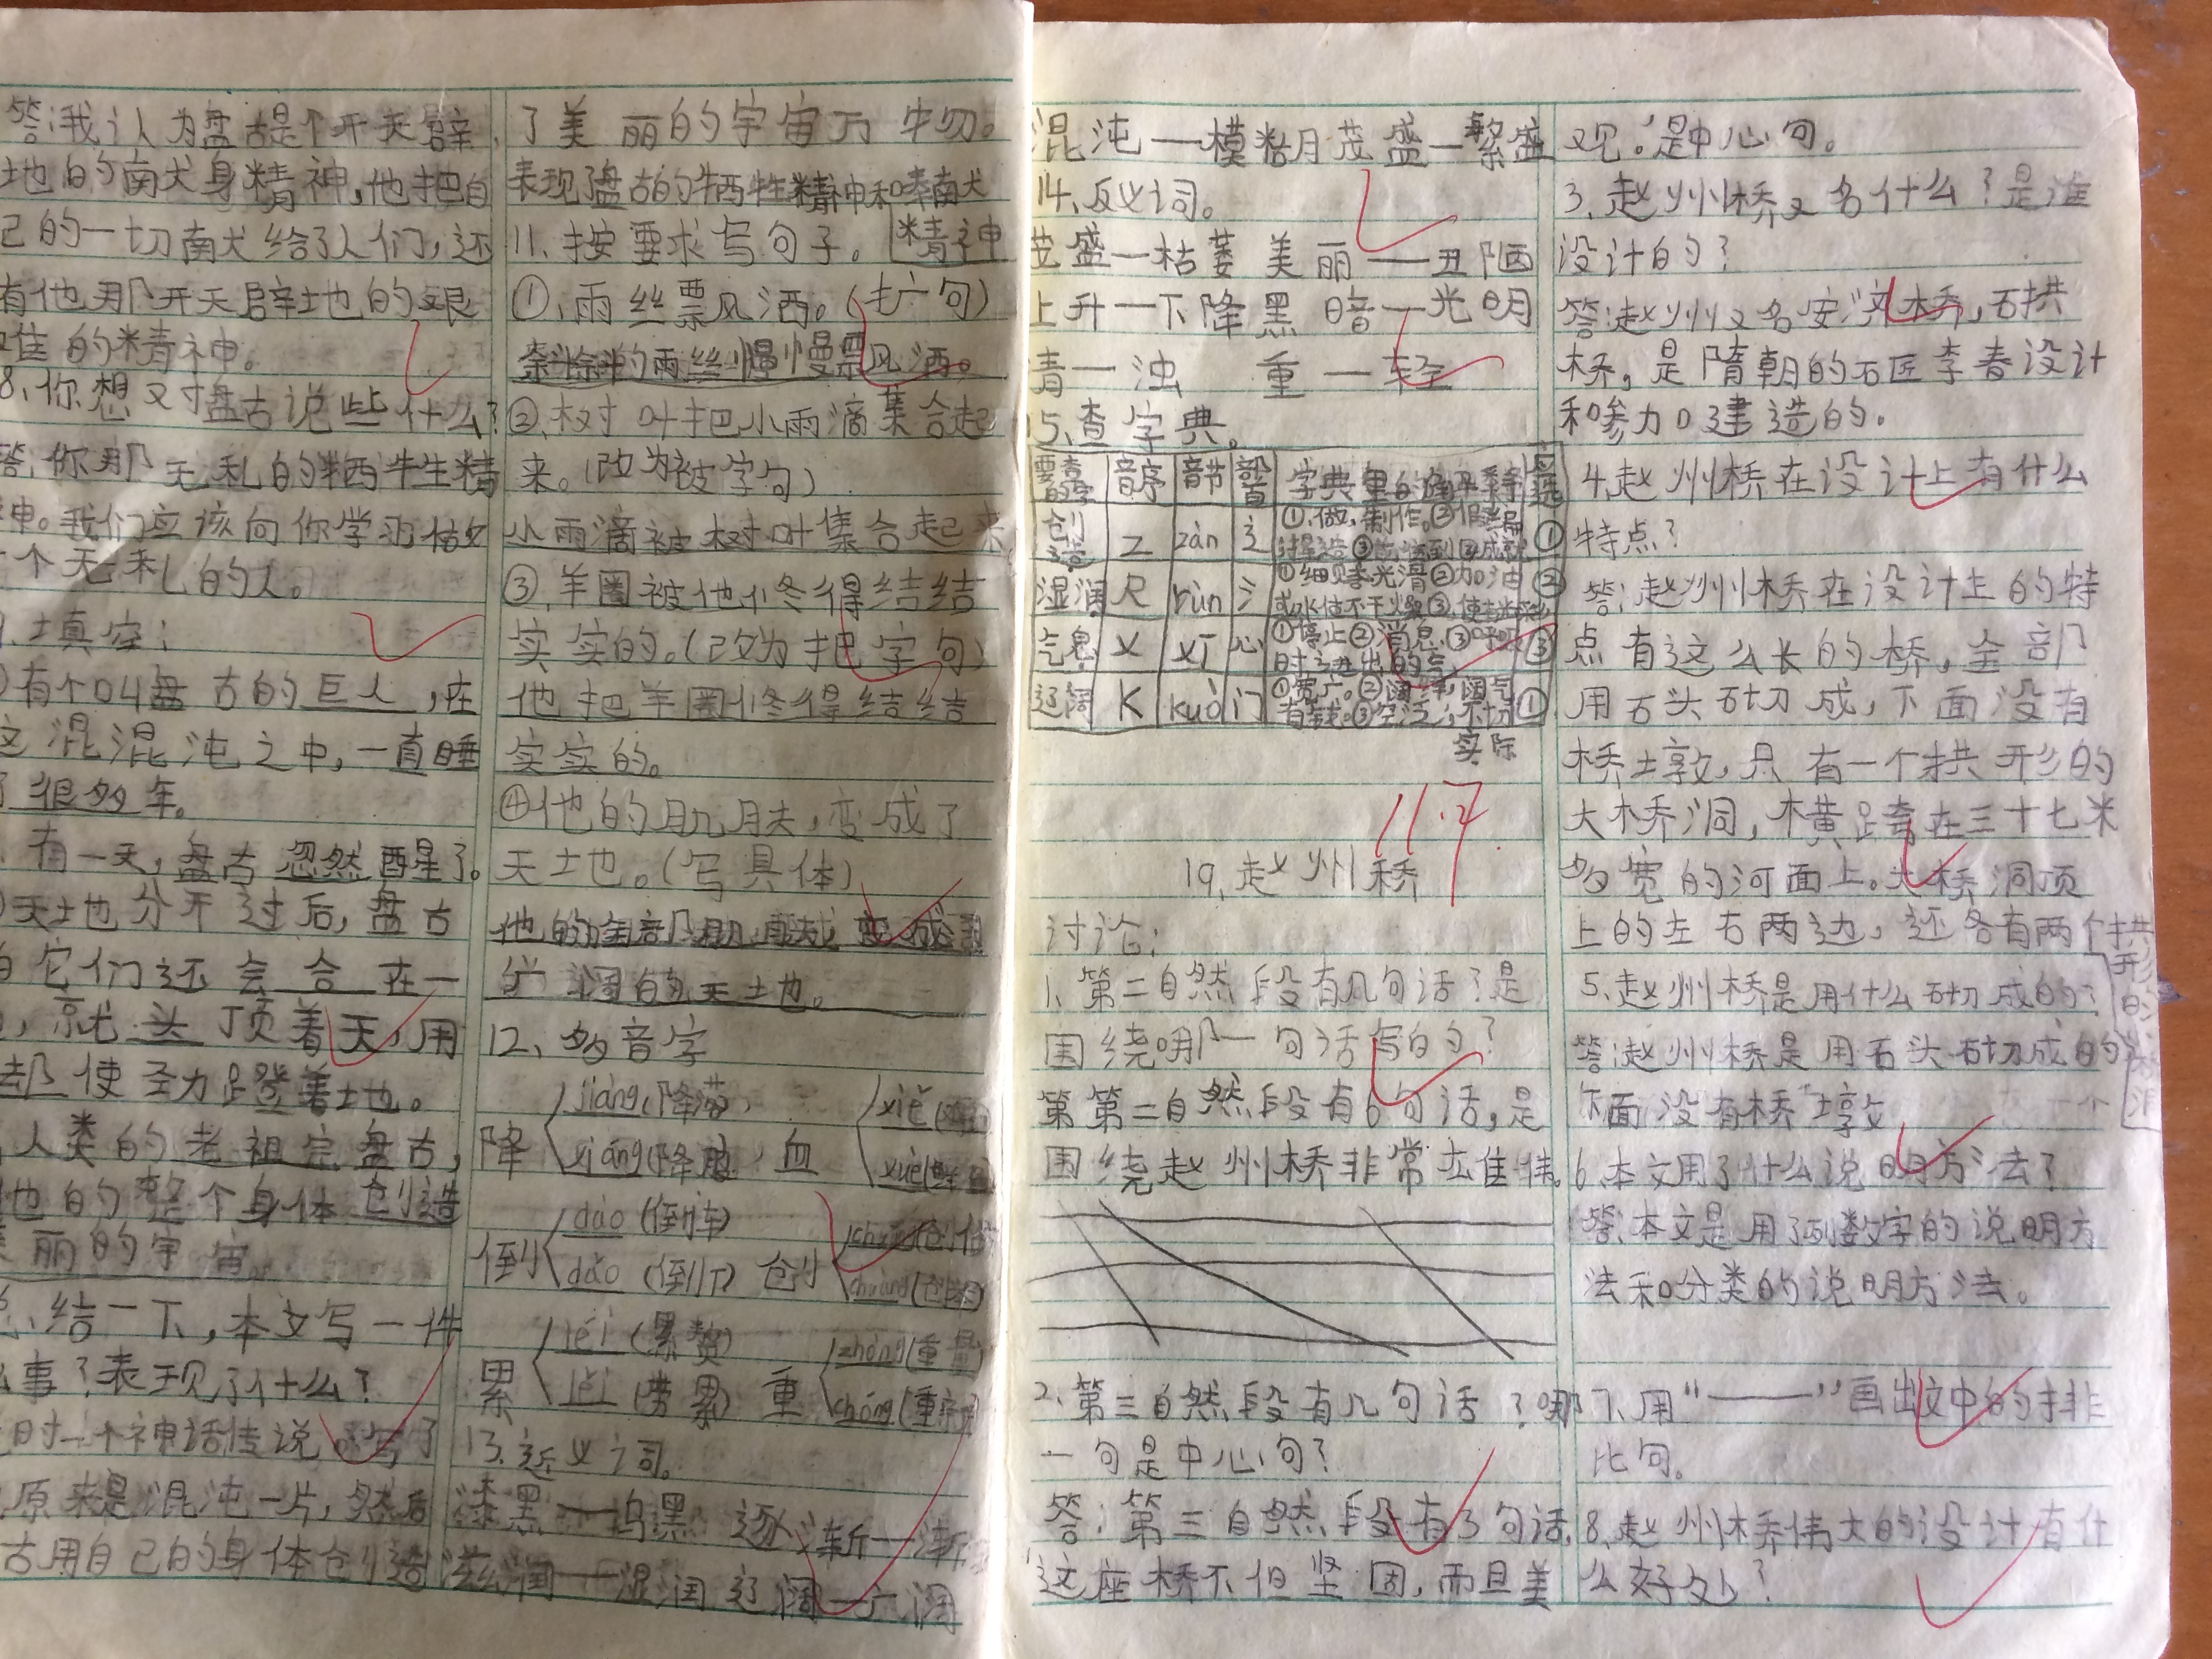 答:我认为盘古是个开天辟
地的献身精神,他把自
己的一切献给了人们,还
有他那开天辟地的艰
难的精神。
8、你想对盘古说些什么?
答:你那无私的牺牲精
神。我们应该向你学习做
一个无私的人。
填空:
有个叫盘古的巨人,在
这混混沌之中,一直睡
了很多年。
有一天,盘古忽然醒了。
天地分开过后,盘古
它们还会合在一
,就头顶着天,用
使劲蹬着地。
人类的老祖宗盘古,
他的整个身体创造
丽的宇宙。
结一下,本文写一件
事?表现了什么?
时一个神话传说。写了
原来是混沌一片,然后
古用自己的身体创造
了美丽的宇宙万物。
表现了盘古的牺牲精神和奉献
精神
11、按要求写句子。
①、雨丝飘洒。(扩句)
的雨丝慢慢飘洒。
②、树叶把小雨滴集合起
来。(改为被字句)
小雨滴被树叶集合起来
③、羊圈被他修得结结
实实的。(改为把字句)
他把羊圈修得结结
实实的。
④他的肌肤,变成了
天地。(写具体)
他的全部肌肤变成
阔的天地。
12、多音字
降 jiàng(降落)
xiáng(降服)
血 xiě
xuè(鲜血
倒 dào(倒车)
dǎo(倒下)
创
累 léi(累赘)
lèi(劳累)
重 zhòng(重量
chóng(重新
13、近义词。
漆黑——乌黑 逐渐—渐
滋润——湿润 辽阔—广阔
混沌—模糊 茂盛—繁盛
14、反义词。
茂盛—枯萎 美丽——丑陋
上升—下降 黑暗—光明
清—浊 重—轻
15、查字典。
要查的字 音序 音节 部首 字典里的解释 应选
创造 Z zàn 辶 ①、做,制作。②假编 ①
湿润 R rùn 氵 ①细腻光滑②加油或水使不干燥③、使 ②
气息 X xī 心 ①停止②消息③呼吸时进出的气 ③
辽阔 K kuò 门 ①宽广。②阔、阔气有钱。③空泛,不切实际 ①
11.7
19、赵州桥
讨论:
1、第二自然段有几句话?是
围绕哪一句话写的?
第第二自然段有6句话,是
围绕赵州桥非常雄伟。
2、第三自然段有几句话?哪
一句是中心句?
答:第三自然段有3句话,
“这座桥不但坚固,而且美
观。”是中心句。
3、赵州桥又名什么?是谁
设计的?
答:赵州又名安济桥,石拱
桥,是隋朝的石匠李春设计
和参加建造的。
4、赵州桥在设计上有什么
特点?
答:赵州桥在设计上的特
点有这么长的桥,全部
用石头砌成,下面没有
桥墩,只有一个拱形的
大桥洞,横跨在三十七米
多宽的河面上。大桥洞顶
上的左右两边,还各有两个拱
形的小桥洞
5、赵州桥是用什么砌成的?
答:赵州桥是用石头砌成的
下面没有桥墩
6、本文用了什么说明方法?
答:本文是用了列数字的说明方
法和分类的说明方法。
7、用“——”画出文中的排
比句。
8、赵州桥伟大的设计有什
么好处?